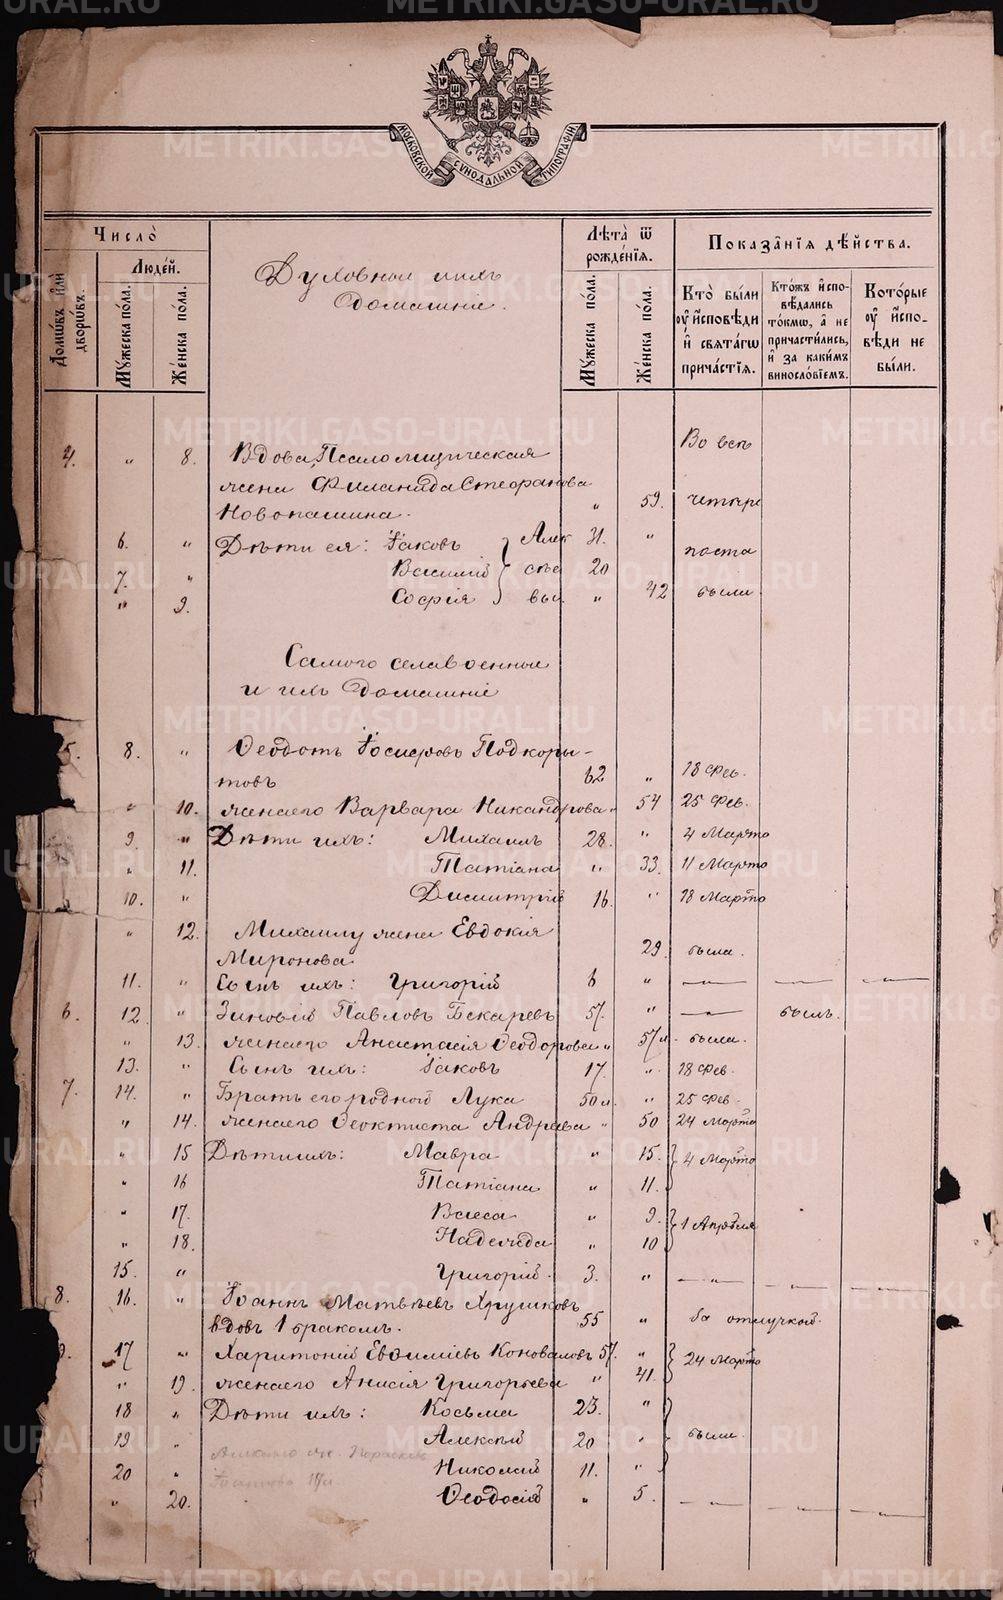 МОСКОВСКОЙ СѴНОДАЛЬНОЙ ТИПОГРАФІИ
Число̀
Людей.
Домѡвъ или дворѡвъ.
Мужеска пола.
Женска пола.
Духовные ихъ
домашніе.
Лѣта ѿ
рожденїѧ.
Мужеска пола.
Женска пола.
Показанїѧ дѣйства.
Кто были
оу исповѣди
и свѧтагѡ
причастїѧ.
Ктожъ испо-
вѣдались
токмѡ, а не
причастились,
и за какимъ
винословїемъ.
Которые
оу испо-
вѣди не
были.
4. " 8. Вдова, Псаломщическая Во всѣ
жена Стефанова " 59. четыре
Новопашина.
6. " Дѣти ея: Іаковъ Алек 31. " поста
7. " Василій сѣе 20
" 9. Софія вы. " 42 были
Самого села военные
и ихъ домашніе
5. 8. " Ѳеодотъ Іосифовъ Подкоры-
товъ 62 " 18 Фев.
" 10. жена его Варвара Никандрова " 54 25 Фев.
9. " Дѣти ихъ: Михаилъ 28. " 4 Марта
" 11. Татіана " 33. 11 Марта
10. " Димитрій 16. " 18 Марта
" 12. Михаилу жена Евдокія
Миронова 29. была.
11. " Сынъ ихъ: Григорій 6 " — — —
6. 12 " Зиновій Павловъ Бекаревъ 57. " — былъ.
" 13. жена его Анастасія Ѳеодорова " 57 была.
13. " Сынъ ихъ: Іаковъ 17. " 18 Фев.
7. 14. " Братъ его родной Лука 50 " 25 Фев.
" 14. жена его Ѳеоктиста Андреева " 50 24 Марта
" 15 Дѣти ихъ: Мавра " 15. 4 Марта
" 16 Татіана " 11.
" 17. Васса " 9. 1 Апрѣля
" 18. Надежда " 10
15. " Григорій. 3. " — — —
8. 16. " Іоаннъ Матвѣевъ Хрушковъ
вдовъ 1 бракомъ. 55 " За отлучкой.
9. 17 " Харитоній Евѳиміевъ Коноваловъ 57. " 24 Марта
" 19. жена его Анисія Григорьева " 41.
18 " Дѣти ихъ: Косьма 23. "
19 " Алексѣй 20 " были.
20 " Николай 11. "
" 20. Ѳеодосія " 5. — — —
METRIKI.GASO-URAL.RU